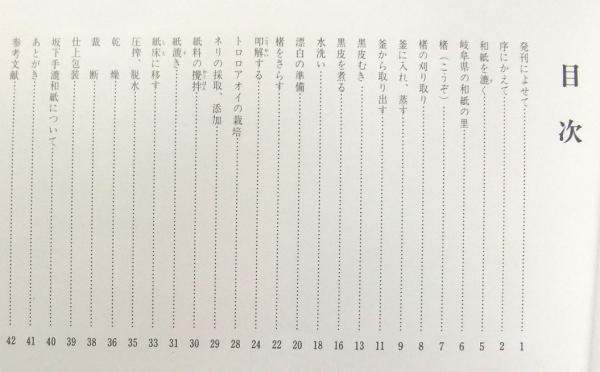 目次
発刊によせて 1
序にかえて 2
和紙を漉く 5
岐阜県の和紙の里 6
楮（こうぞ） 7
楮の刈り取り 8
釜に入れ、蒸す 9
釜から取り出す 11
黒皮むき 13
黒皮を煮る 16
水洗い 18
漂白の準備 20
楮をさらす 22
叩解する 24
トロロアオイの栽培 28
ネリの採取、添加 29
紙料の攪拌 30
紙漉き 31
紙床に移す 33
圧搾、脱水 35
乾燥 36
裁断 38
仕上包装 39
坂下手漉和紙について 40
あとがき 41
参考文献 42